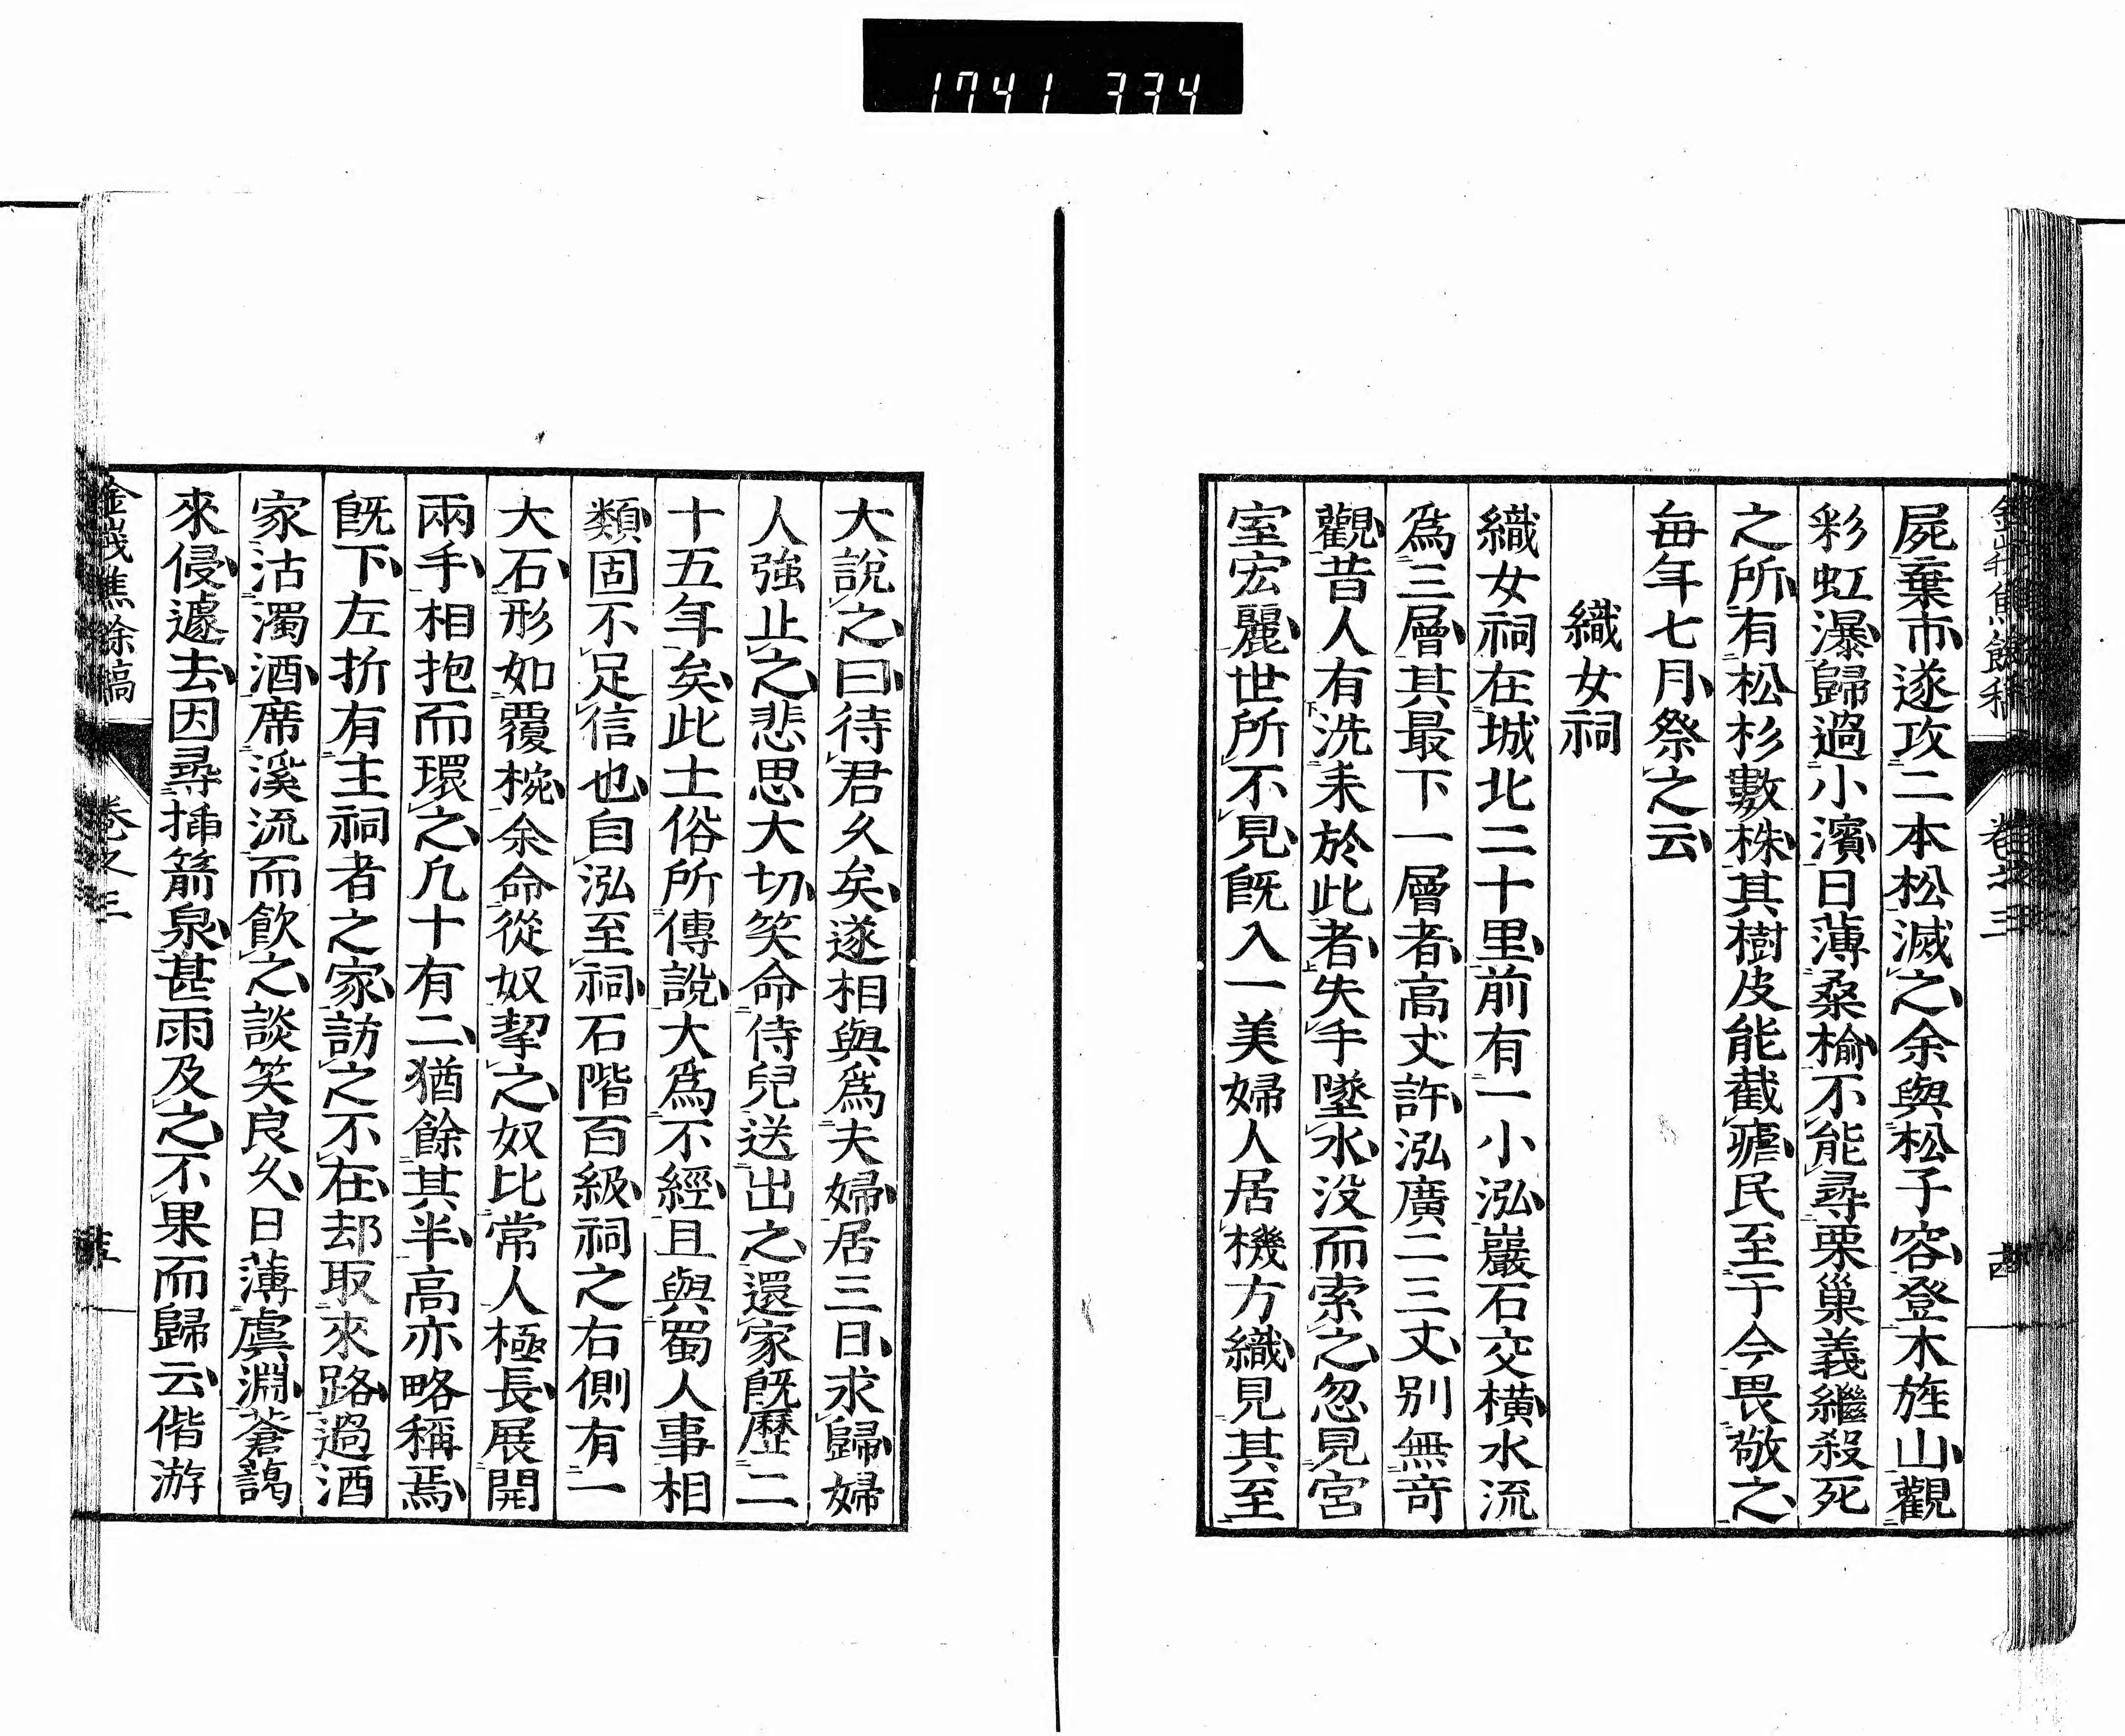 1741 334
屍棄市遂攻二本松滅之余與松子容登木旌山觀
彩虹瀑歸過小濱日薄桑楡不能尋栗巢義繼殺死
之所有松杉數株其樹皮能截瘧民至于今畏敬之
毎年七月祭之云
織女祠
織女祠在城北二十里前有一小泓巖石交橫水流
爲三層其最下一層者高丈許泓廣二三丈別無奇
觀昔人有洗耒於此者失手墜水没而索之忽見宮
室宏麗世所不見既入一美婦人居機方織見其至
大説之曰待君久矣遂相與爲夫婦居三日求歸婦
人強止之悲思大切笑命侍兒送出之還家既歷二
十五年矣此土俗所傳說大爲不經且與蜀人事相
類固不足信也自泓至祠石階百級祠之右側有一
大石形如覆椀余命從奴挈之奴比常人極長展開
兩手相抱而環之凢十有二猶餘其半高亦略稱焉
既下左折有主祠者之家訪之不在却取來路過酒
家沽濁酒席溪流而飲之談笑良久日薄虞淵蒼靄
來侵遽去因尋挿箭泉甚雨及之不果而歸云偕游
卷之三